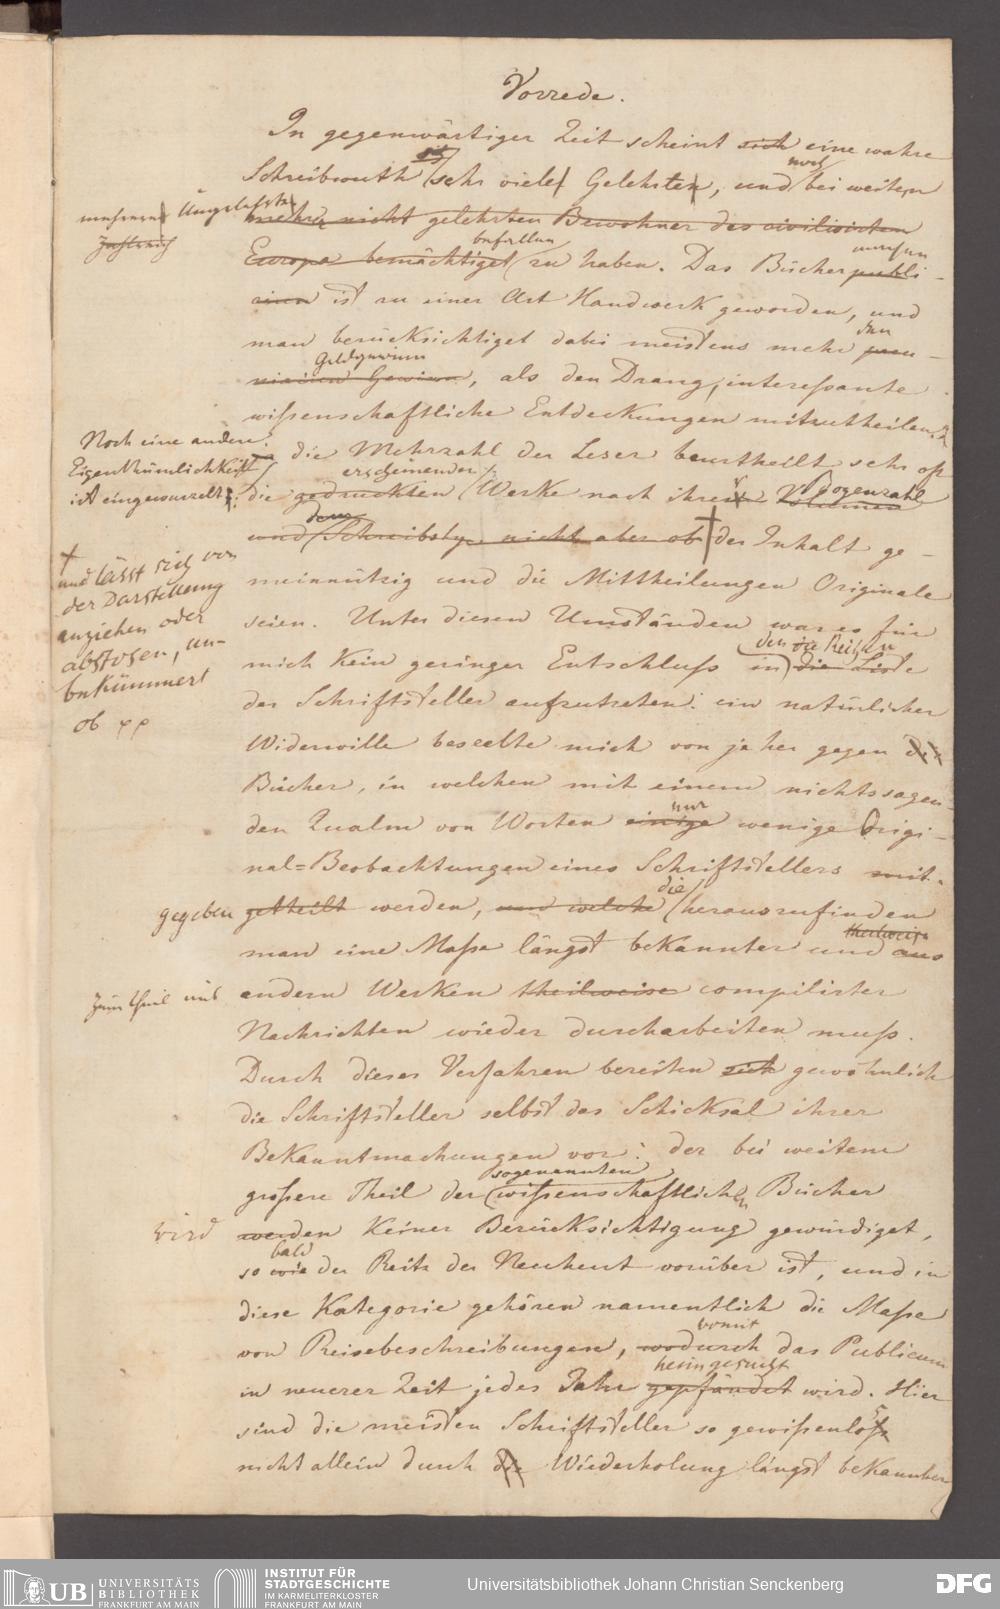 Vorrede.
In gegenwärtiger Zeit scheint sich eine wahre
Schreibwuth sich sehr vieler Gelehrten, und noch bei weitem
mehrerer Ungelehrter
zahlreich
mehr nicht gelehrten Bewohner des civilisirten
Europa bemächtiget befallen zu haben. Das Büchermachen publi-
ciren ist zu einer Art Handwerk geworden, und
man berücksichtiget dabei meistens mehr den pecu-
niairen Gewinn Geldgewinn, als den Drang, interessante
wissenschaftliche Entdeckungen mitzutheilen.
Noch eine andere
Eigenthümlichkeit
ist eingewurzelt:
die Mehrzahl der Leser beurtheilt sehr oft
die gedruckten erscheinender Werke nach ihrer Volumen Bogenzahl
und dem Schreibstyl, nicht aber ob der Inhalt ge-
und lässt sich von
der Darstellung
anziehen oder
abstosen, un-
bekümmert
ob
meinnützig und die Mittheilungen Originale
seien. Unter diesen Umständen war es für
mich kein geringer Entschluss in die Liste den die Reihen
der Schriftsteller aufzutreten: ein natürlicher
Widerwille beseelte mich von jeher gegen die
Bücher, in welchen mit einem nichtssagen-
den Qualm von Worten einige nur wenige Origi-
nal=Beobachtungen eines Schriftstellers mit-
gegeben getheilt werden, und welche die herauszufinden
man eine Masse längst bekannter und theilweise aus
zum Theil aus andern Werken theilweise compilirter
Nachrichten wieder durcharbeiten muss.
Durch dieses Verfahren bereiten sich gewöhnlich
die Schriftsteller selbst das Schicksal ihrer
Bekanntmachungen vor: der bei weitem
grössere Theil der sogenannten wissenschaftlichen Bücher
wird werden keiner Berücksichtigung gewürdiget,
so wie bald der Reitz der Neuheit vorüber ist, und in
diese Kategorie gehören namentlich die Masse
von Reisebeschreibungen, wodurch womit das Publicum
in neuerer Zeit jedes Jahr gepfändet heimgesucht wird. Hier
sind die meisten Schriftsteller so gewissenlos
nicht allein durch die Wiederholung längst bekannter
UB UNIVERSITÄTS
BIBLIOTHEK
FRANKFURT AM MAIN
INSTITUT FÜR
STADTGESCHICHTE
IM KARMELITERKLOSTER
FRANKFURT AM MAIN
Universitätsbibliothek Johann Christian Senckenberg
DFG